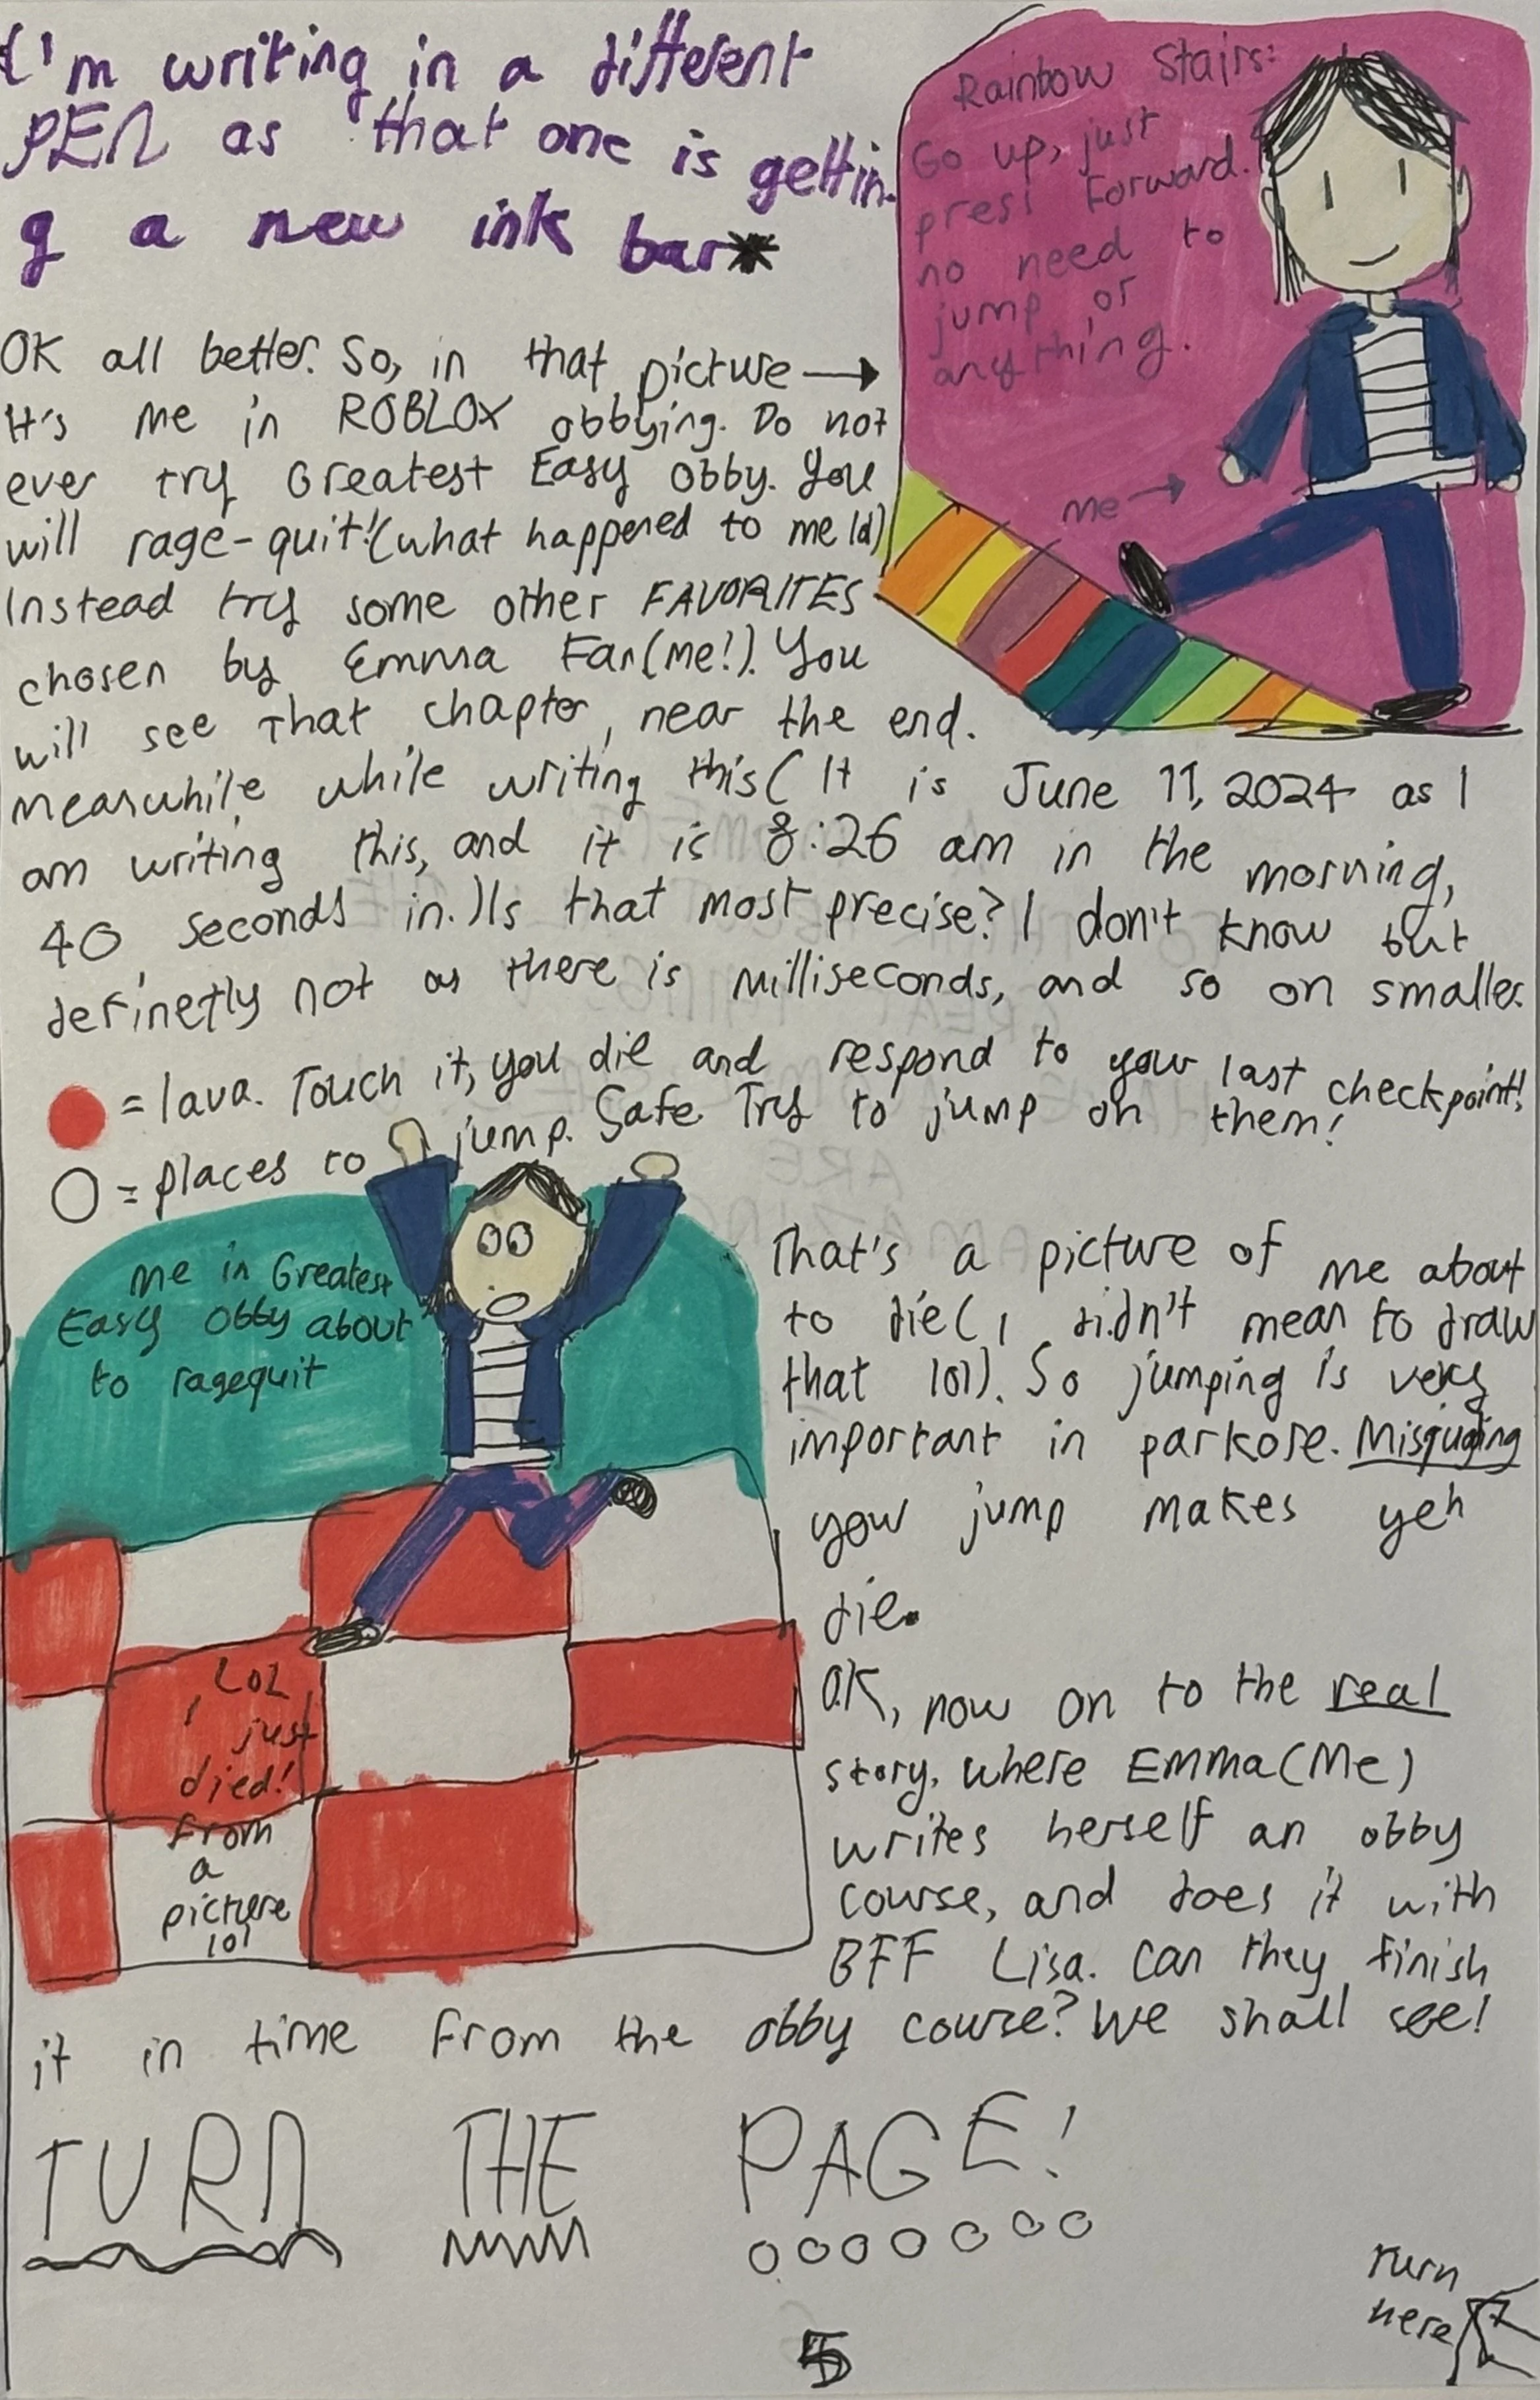 I'm writing in a different
PEN as that one is gettin-
g a new ink bar*
Rainbow Stairs:
Go up, just
press forward.
no need to
jump or
anything.
me →
OK all better. So, in that picture →
It's me in ROBLOX obbying. Do not
ever try Greatest Easy Obby. You
will rage-quit! (what happened to me lol)
Instead try some other FAVORITES
chosen by Emma Fan(me!). You
will see that chapter, near the end.
Meanwhile, while writing this( It is June 11, 2024 as I
am writing this, and it is 8:26 am in the morning,
40 seconds in.) Is that most precise? I don't know but
definetly not as there is milliseconds, and so on smaller.
= lava. Touch it, you die and respond to your last checkpoint!
= places to jump. Safe. Try to jump on them!
me in Greatest
Easy Obby about
to ragequit
LOL
I just
died!
from
a
picture
lol
That's a picture of me about
to die( I didn't mean to draw
that lol). So jumping is very
important in parkore. Misjuging
your jump makes yeh
die.
OK, now on to the real
story, where Emma(Me)
writes herself an obby
course, and does it with
BFF Lisa. Can they finish
it in time from the obby course? We shall see!
TURN THE PAGE!
Turn
here
5